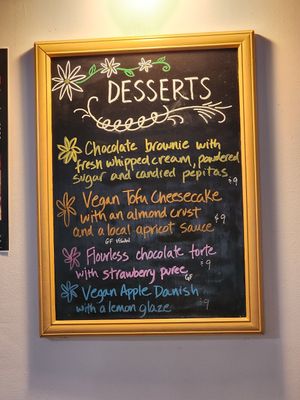 DESSERTS
Chocolate brownie with
fresh whipped cream, powdered
sugar and candied pepitas $9
Vegan Tofu Cheesecake
with an almond crust $9
and a local apricot sauce
GF VEGAN
Flourless chocolate torte $9
with strawberry puree GF
Vegan Apple Danish
with a lemon glaze $9